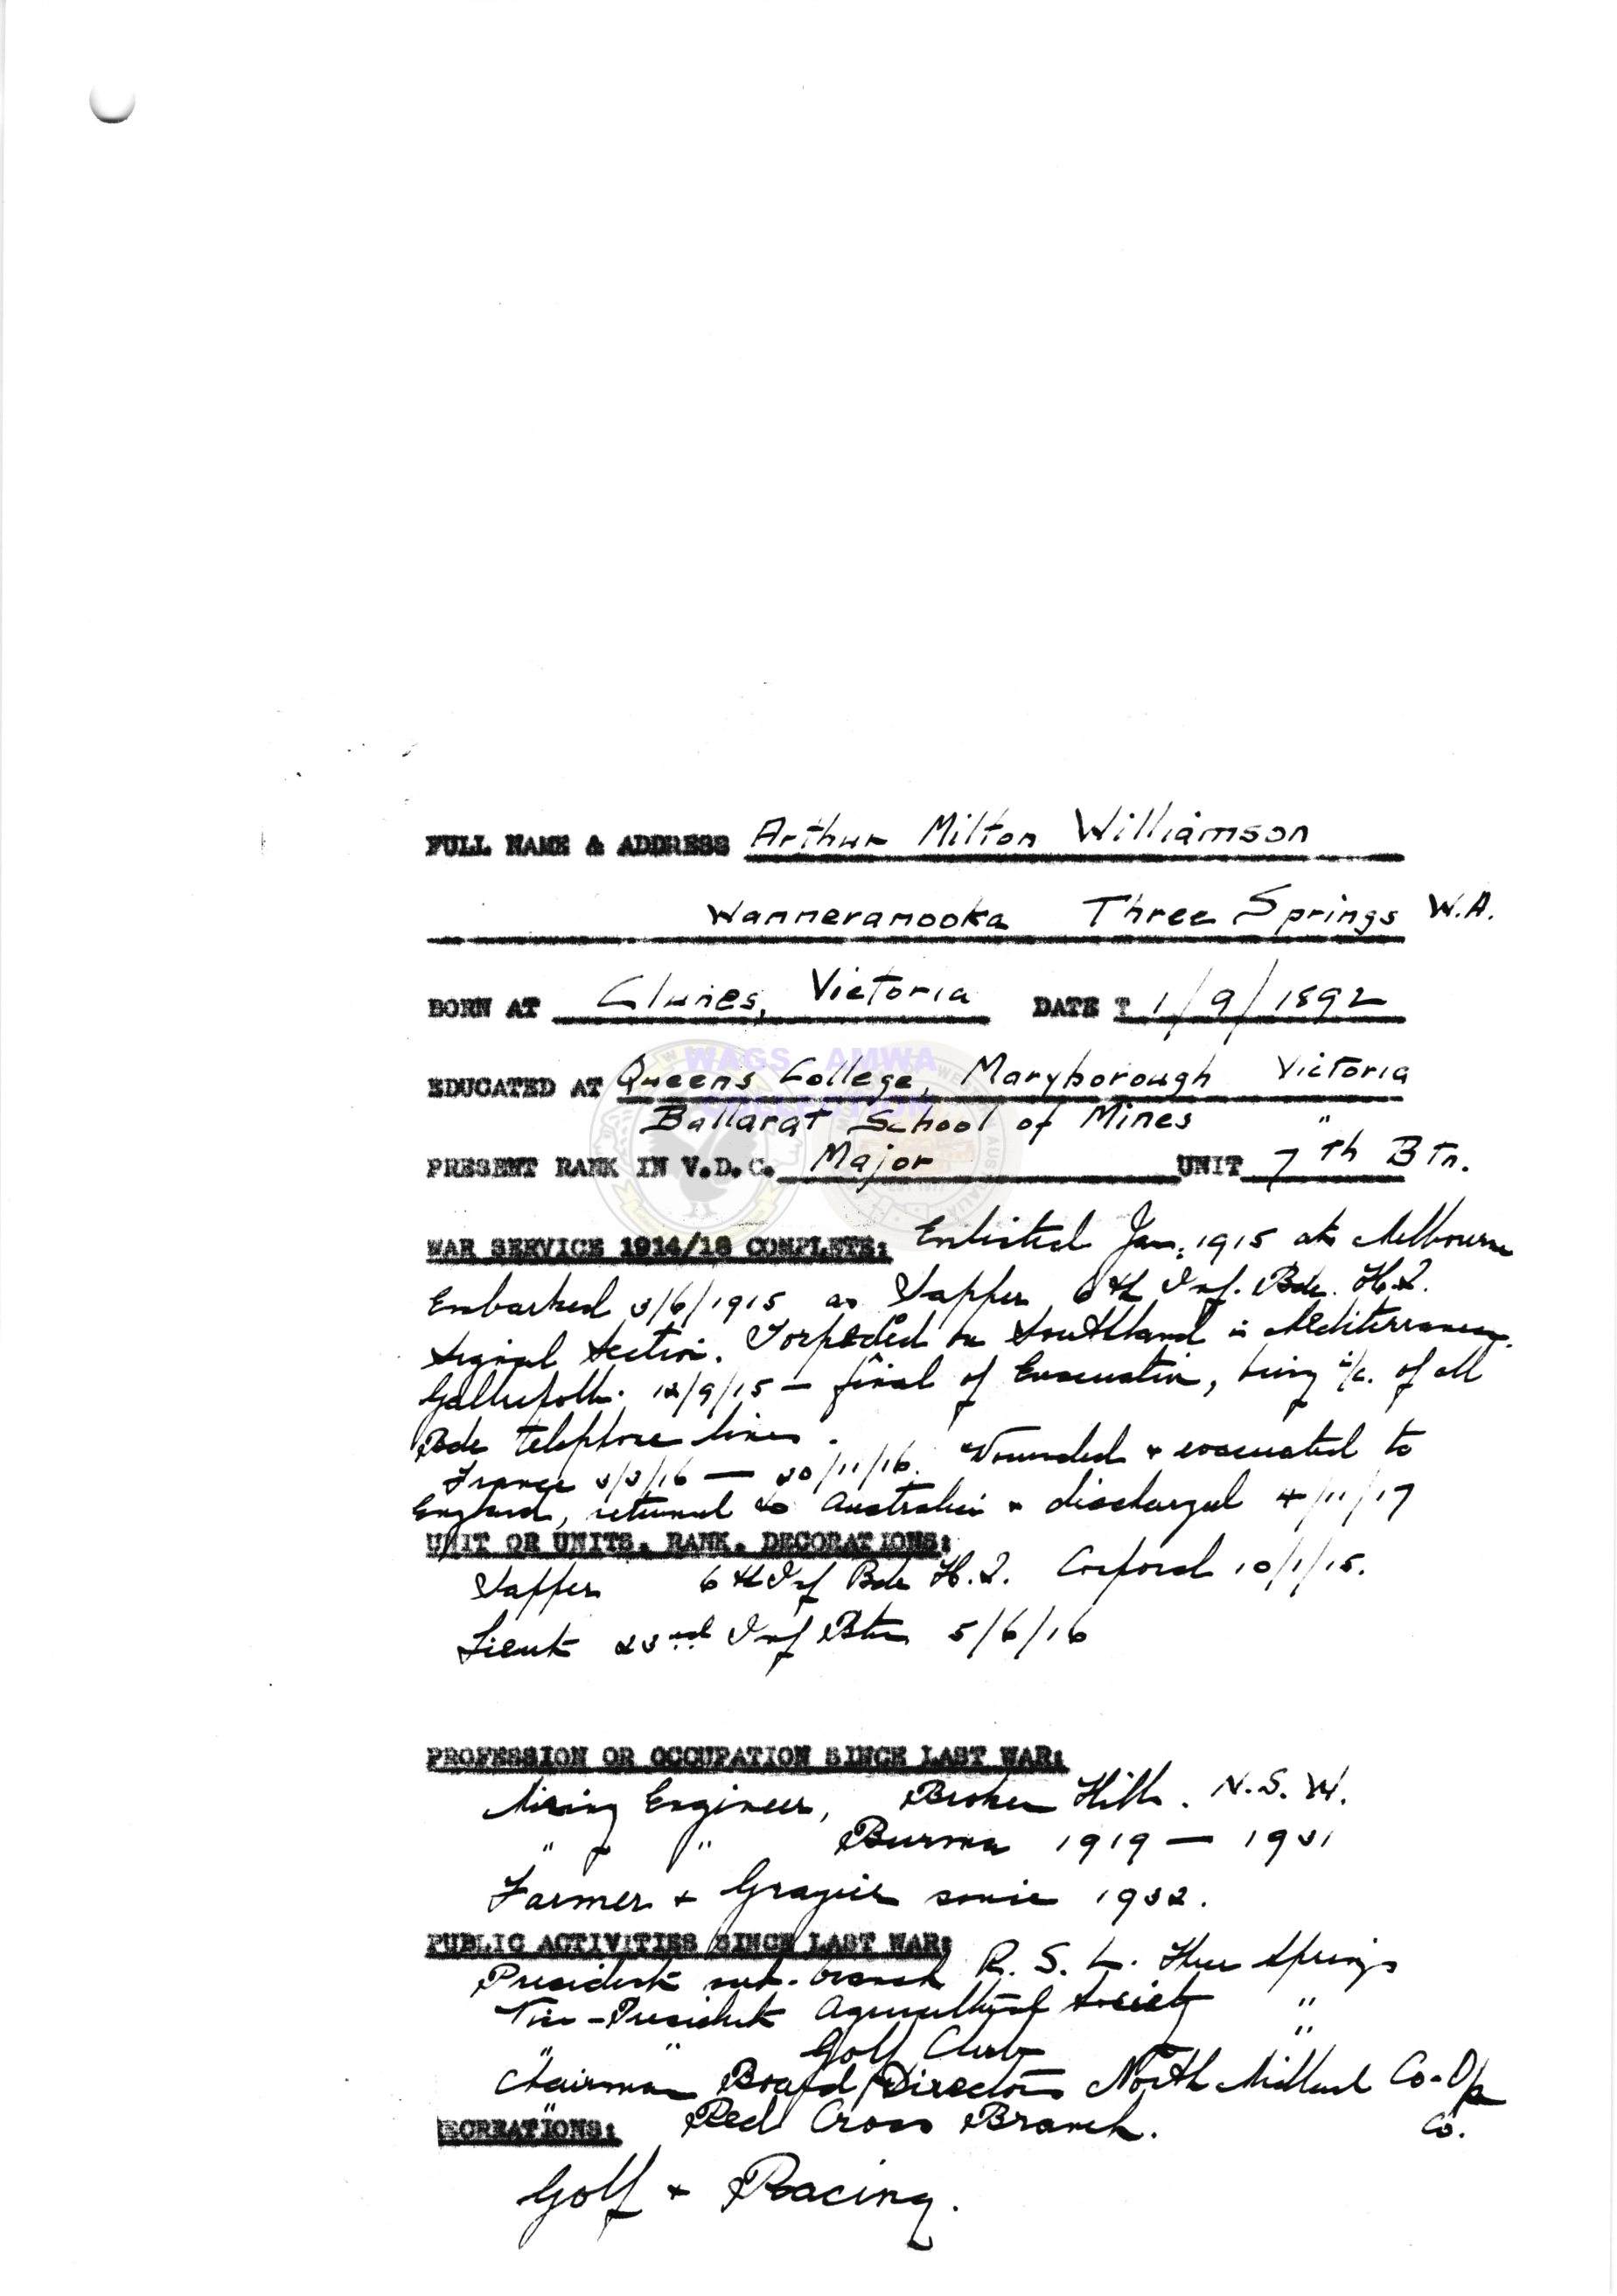 FULL NAME & ADDRESS Arthur Milton Williamson
Wanneranooka Three Springs W.A.
BORN AT Clunes, Victoria DATE ? 1/9/1892
WAGS AMWA
EDUCATED AT Queen's College, Maryborough Victoria
COLLECTION
Ballarat School of Mines "
PRESENT RANK IN V.D.C. Major UNIT 7th Btn.
WAR SERVICE 1914/18 COMPLETE: Enlisted Jan. 1915 at Melbourne
Embarked 3/6/1915 as Sapper 6th Inf. Bde. H.Q.
Signal Section. Torpedoed on Southland in Mediterranean.
Gallipoli. 12/9/15 — final of Evacuation, being i/c. of all
Bde telephone lines.
France 3/3/16 — 30/11/16. Wounded + evacuated to
England, returned to Australia + discharged 4/11/17
UNIT OR UNITS. RANK. DECORATIONS:
Sapper 6th Inf Bde H.Q. Corporal 10/1/15.
Lieut 23rd Inf Btn 5/6/16
PROFESSION OR OCCUPATION SINCE LAST WAR:
Mining Engineer, Broken Hill. N.S.W.
" " Burma 1919 — 1931
Farmer + Grazier since 1932.
PUBLIC ACTIVITIES SINCE LAST WAR:
President sub-branch R.S.L. Three Springs
Vice-President Agricultural Society "
" " Golf Club "
Chairman Board Directors North Midland Co-Op
" Red Cross Branch. Co.
RECREATIONS:
Golf + Racing.